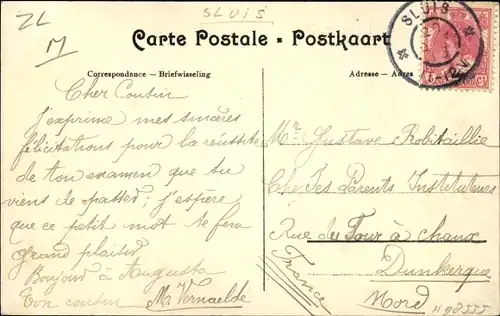 ZL
M
SLUIS
SLUIS
Carte Postale - Postkaart
Correspondance — Briefwisseling
Adresse — Adres
Cher Cousin
J'exprime mes sincères
félicitations pour la réussite
de ton examen que tu
viens de passer; j'espère
que ce petit mot te fera
grand plaisir
Bonjour à Augusta
Ton cousin M. Vernaelde
Mr Gustave Robitaillie
Ches Ses Parents Instituteurs
Rue du Four à Chaux
Dunkerque
Nord
France
H 98555